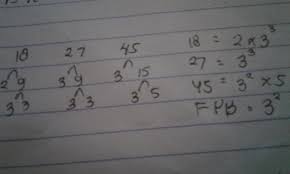 18 27 45
2 9 3 9 3 15
3 3 3 3 3 5
18 = 2 × 3³
27 = 3³
45 = 3² × 5
FPB = 3²